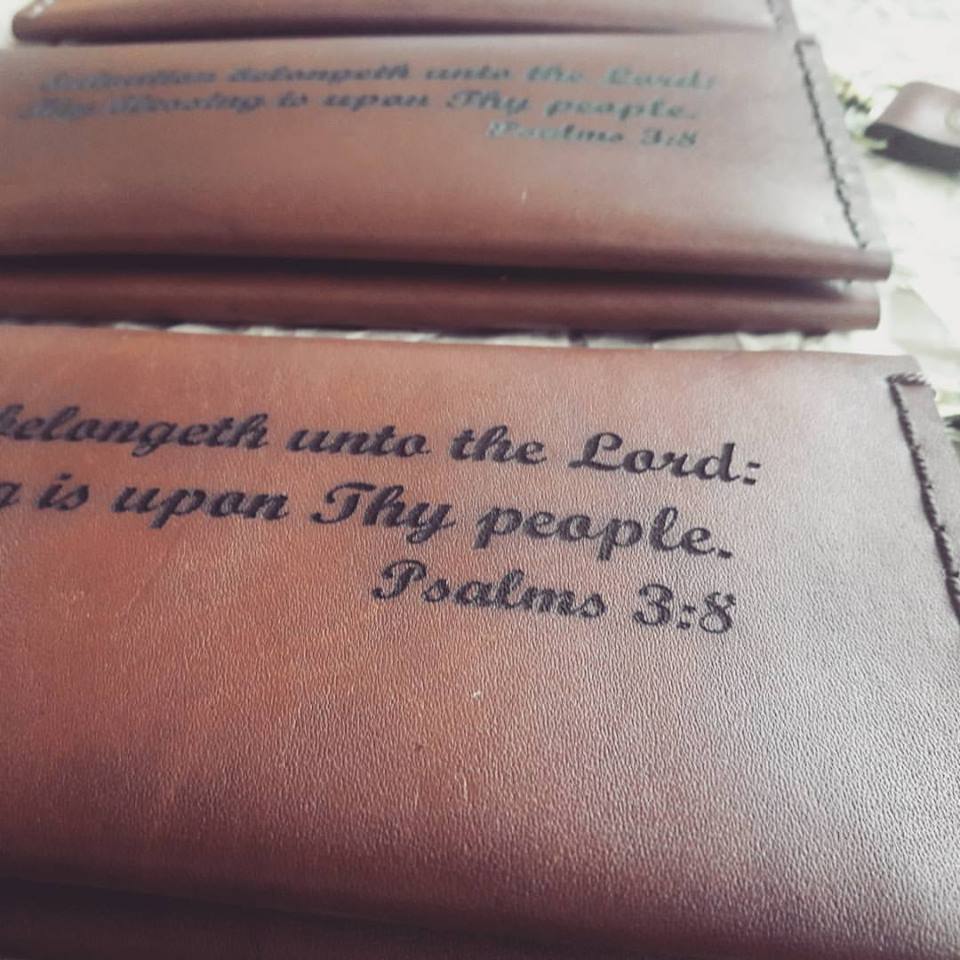 Salvation belongeth unto the Lord:
Thy blessing is upon Thy people.
Psalms 3:8
belongeth unto the Lord:
g is upon Thy people.
Psalms 3:8